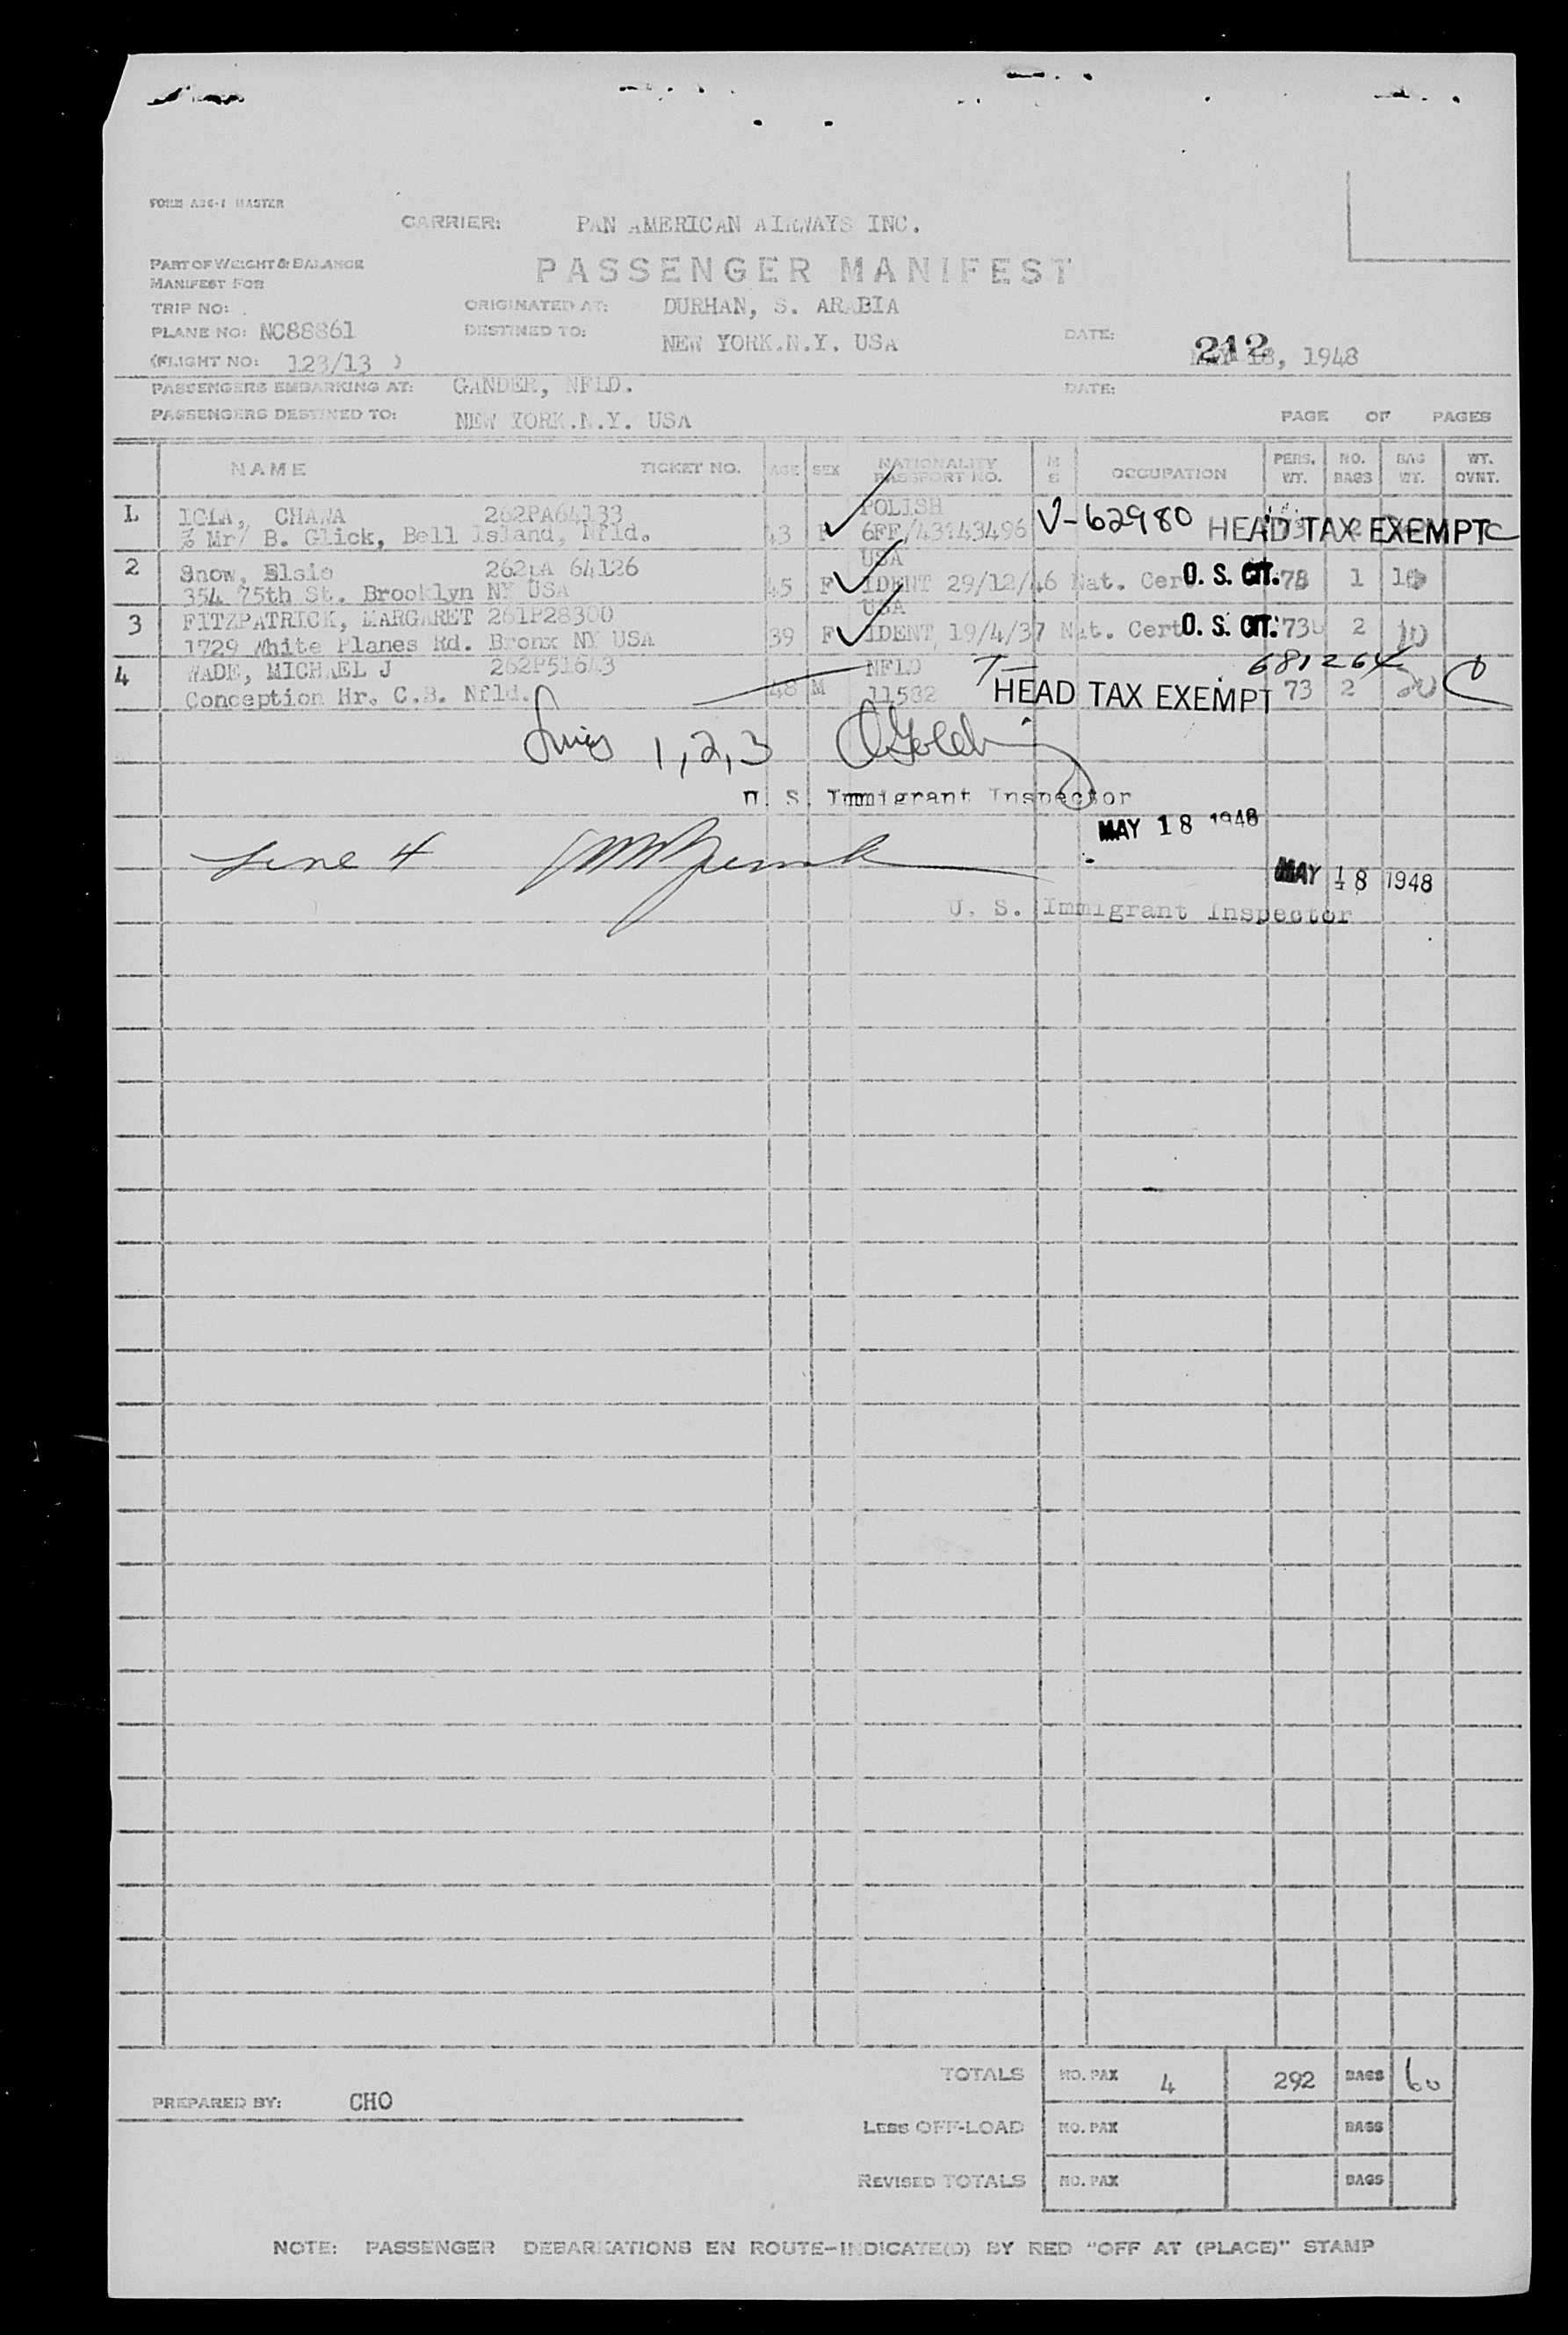 FORM A36-1 MASTER
CARRIER: PAN AMERICAN AIRWAYS INC.
PART OF WEIGHT & BALANCE
MANIFEST FOR
PASSENGER MANIFEST
TRIP NO: ORIGINATED AT: DURHAN, S. ARABIA
PLANE NO: NC88861 DESTINED TO: NEW YORK.N.Y. USA DATE: 212 MAY 18, 1948
(FLIGHT NO: 123/13 )
PASSENGERS EMBARKING AT: GANDER, NFLD. DATE:
PASSENGERS DESTINED TO: NEW YORK.N.Y. USA PAGE OF PAGES
NAME TICKET NO. AGE SEX NATIONALITY PASSPORT NO. M S OCCUPATION PERS. WT. NO. BAGS BAG WT. WT. OVNT.
1 CHANA 262PA64133 POLISH
% Mr/ B. Glick, Bell Island, Nfld. 43 F 6FF/43143496 V-62980 HEAD TAX EXEMPT C
2 Snow, Elsie 262PA 64126 USA
354 75th St. Brooklyn NY USA 45 F IDENT 29/12/46 Nat. Cert U. S. CIT. 78 1 10
3 FITZPATRICK, MARGARET 261P28300 USA
1729 White Planes Rd. Bronx NY USA 39 F IDENT 19/4/37 Nat. Cert U. S. CIT. 73 2 10
4 WADE, MICHAEL J 262P51643 NFLD 681264
Conception Hr. C.B. Nfld. 48 M 11582 HEAD TAX EXEMPT 73 2 20
Lines 1,2,3
U. S. Immigrant Inspector
MAY 18 1948
Line 4
MAY 18 1948
U. S. Immigrant Inspector
TOTALS NO. PAX 4 292 BAGS 60
PREPARED BY: CHO
LESS OFF-LOAD NO. PAX BAGS
REVISED TOTALS NO. PAX BAGS
NOTE: PASSENGER DEBARKATIONS EN ROUTE-INDICATE(D) BY RED "OFF AT (PLACE)" STAMP